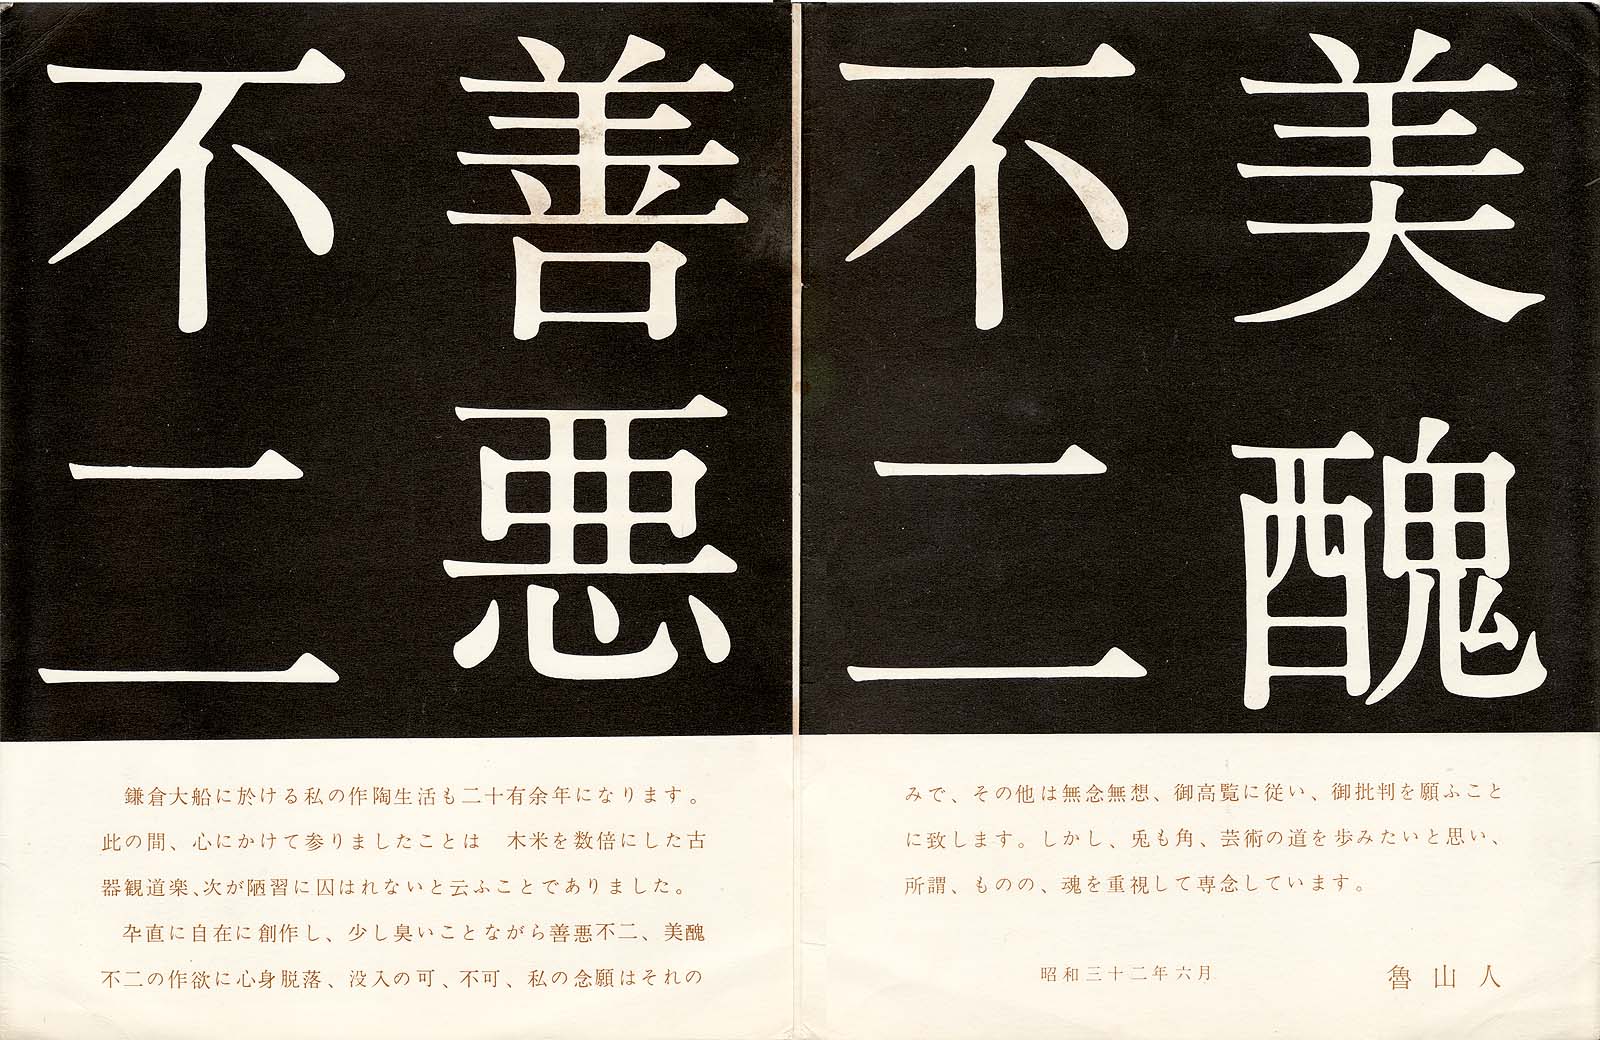 美醜
不二
善悪
不二
鎌倉大船に於ける私の作陶生活も二十有余年になります。
此の間、心にかけて参りましたことは　木米を数倍にした古
器観道楽、次が陋習に囚はれないと云ふことでありました。
卒直に自在に創作し、少し臭いことながら善悪不二、美醜
不二の作欲に心身脱落、没入の可、不可、私の念願はそれの
みで、その他は無念無想、御高覧に従い、御批判を願ふこと
に致します。しかし、兎も角、芸術の道を歩みたいと思い、
所謂、ものの、魂を重視して専念しています。
昭和三十二年六月
魯山人